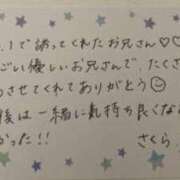 .1で誘ってくれたお兄さん♡♡
ごい優しいお兄さんで、たくさ
させてくれてありがとう☺
後は一緒に気持ち良くな
かった!!
さくら